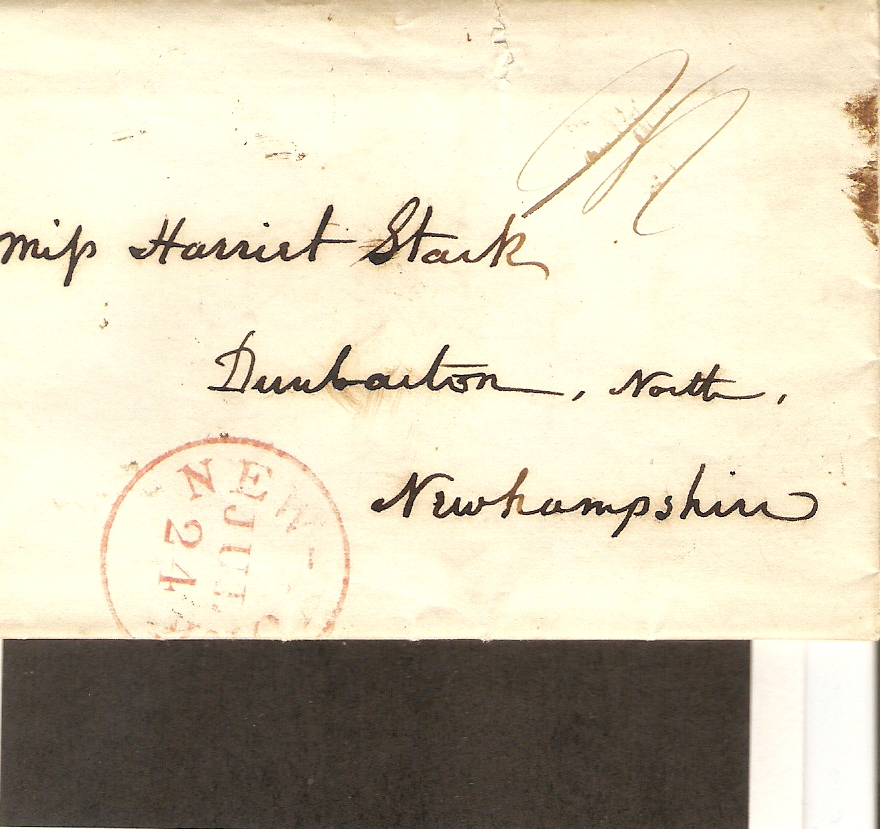 Miss Harriet Stark
Dunbarton, North,
Newhampshire
NEW-
JUL
24